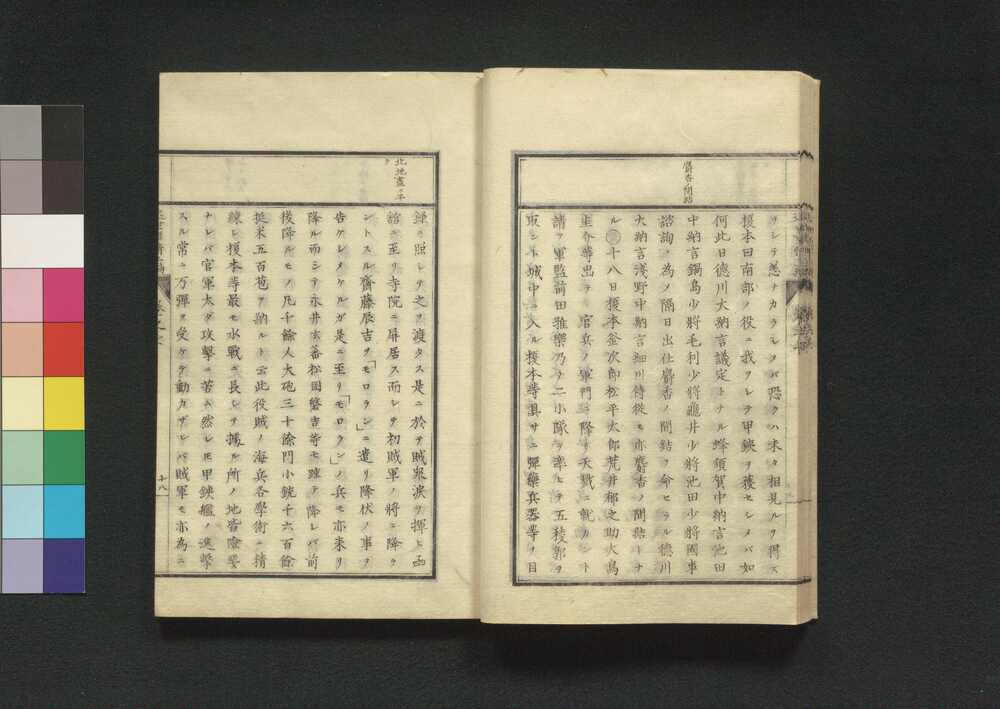 麝香間詰
ヲシテ恙ナカラシメバ恐クハ未タ相見ルヲ得ス
榎本曰南部ノ役ニ我ヲシテ甲鉄ヲ獲セシメバ如
何此日德川大納言議定トナル蜂須賀中納言池田
中納言鍋島少將毛利少將龜井少將池田少將國事
諮詢ノ為メ隔日出仕麝香ノ間詰ヲ命セラル德川
大納言淺野中納言細川侍從モ亦麝香ノ間詰トナ
ル十八日榎本釜次郎松平太郎荒井郁之助大鳥
圭介等出テ官兵ノ軍門ニ降リ天戮ニ就カント
請フ軍監前田雅樂乃チ二小隊ヲ率ヒテ五稜郭ヲ
取シ城中ニ入ル榎本等具サニ彈藥兵器等ヲ目
北地盡ク平ク
錄ニ照シテ之ヲ渡タス是ニ於テ賊衆淚ヲ揮ヒ函
館ニ至リ寺院ニ屏居ス而シテ初賊軍ノ將ニ降ラ
ントスル齋藤辰吉ヲ「モロラン」ニ遣リ降伏ノ事ヲ
告ケシメケルガ是ニ至リ「モロラン」ノ兵モ亦来リ
降ル而シテ永井玄蕃松岡磐吉等モ踵テ降レバ前
後降ルモノ凡千餘人大砲三十餘門小銃千六百餘
挺米五百苞ヲ納ルト云此役賊ノ海兵各學術ニ精
練シ榎本等最モ水戰ニ長シテ據ル所ノ地皆險要
ナレバ官軍太ダ攻擊ニ苦ム然レ𪜈甲鉄艦ノ進擊
スル常ニ万彈ヲ受ケテ動カザレバ賊軍モ亦為ニ
十八